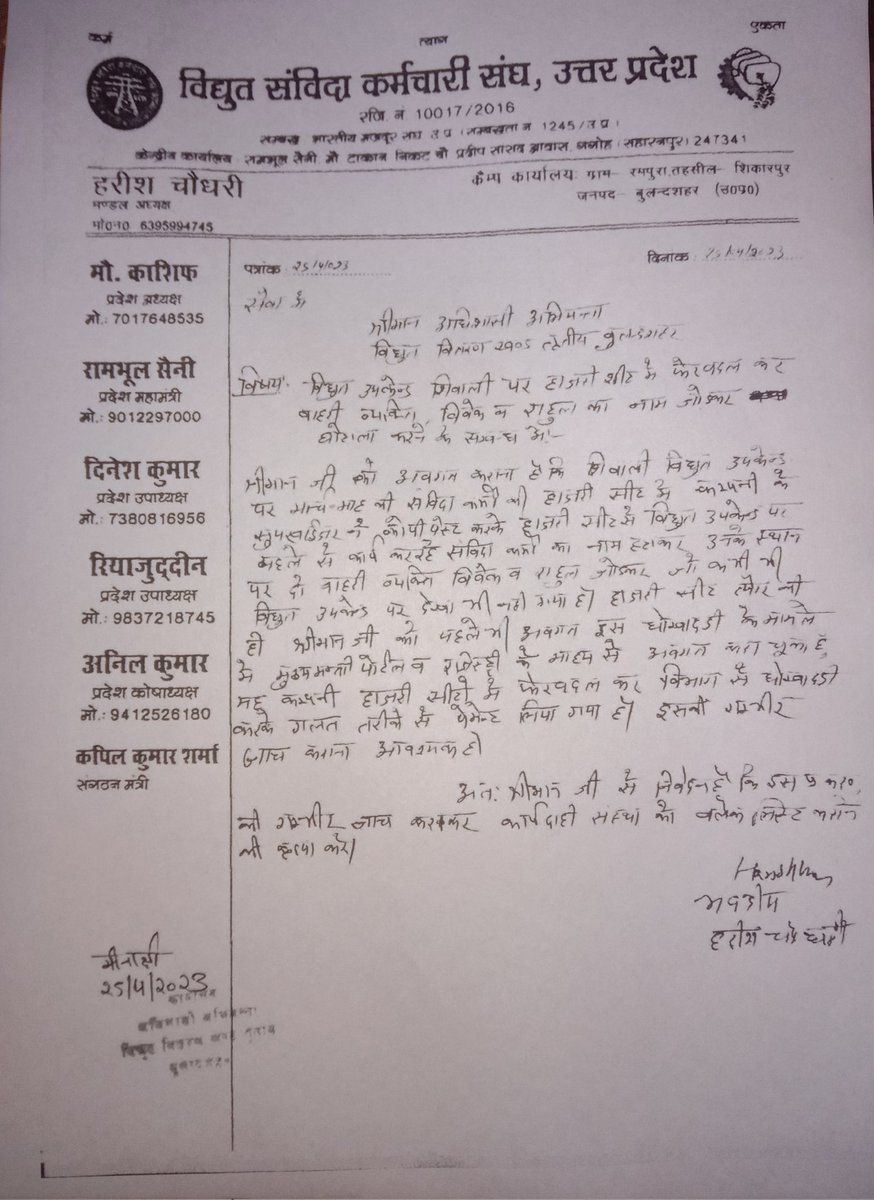 कर्म त्याग एकता
विद्युत संविदा कर्मचारी संघ, उत्तर प्रदेश
रजि. नं 10017/2016
सम्बद्ध भारतीय मजदूर संघ उ प्र (सम्बद्धता न 1245/उ प्र)
केन्द्रीय कार्यालय - रामभूल सैनी मौ टाकान निकट चौ प्रदीप सांसद आवास, (सहारनपुर) 247341
हरीश चौधरी
मण्डल अध्यक्ष
मो०न० 6395994745
कैम्प कार्यालय: ग्राम- रमपुरा, तहसील- शिकारपुर
जनपद- बुलन्दशहर (उ०प्र०)
मौ. काशिफ
प्रदेश अध्यक्ष
मो.: 7017648535
रामभूल सैनी
प्रदेश महामंत्री
मो.: 9012297000
दिनेश कुमार
प्रदेश उपाध्यक्ष
मो.: 7380816956
रियाजुद्दीन
प्रदेश उपाध्यक्ष
मो.: 9837218745
अनिल कुमार
प्रदेश कोषाध्यक्ष
मो.: 9412526180
कपिल कुमार शर्मा
संगठन मंत्री
पत्रांक: 25/4/023 दिनांक: 25/04/2023
सेवा में
श्रीमान अधिशासी अभियन्ता
विद्युत वितरण खण्ड तृतीय बुलन्दशहर
विषय:- विद्युत उपकेन्द्र शिवाली पर हाजरी शीट मे फेरबदल कर
बाहरी व्यक्ति, विवेक व राहुल का नाम जोडकर
घोटाला करने के सम्बन्ध में:-
श्रीमान जी को अवगत कराना है कि शिवाली विद्युत उपकेन्द्र
पर मार्च माह की संविदा कर्मी की हाजरी सीट मे कम्पनी के
सुपरवाईजर ने कॉपी पेस्ट करके हाजरी सीट मे विद्युत उपकेन्द्र पर
पहले से कार्य कर रहे संविदा कर्मी का नाम हटाकर उनके स्थान
पर दो बाहरी व्यक्ति विवेक व राहुल जोडकर जो कभी भी
विद्युत उपकेन्द्र पर देखा भी नही गया है। हाजरी सीट तैयार की
है श्रीमान जी को पहले भी अवगत इस धोखादडी के मामले
मे मुख्यमन्त्री पोर्टल व रजिस्ट्री के माध्यम से अवगत करा चुका है,
यह कम्पनी हाजरी सीटो मे फेरबदल कर विभाग से धोखादडी
करके गलत तरीके से पेमेन्ट लिया गया है। इसकी गम्भीर
जाच कराना आवश्यक है
अत: श्रीमान जी से निवेदन है कि इस प्रकरण
की गम्भीर जाच करवाकर कार्यदाही संस्था को ब्लेक लिस्ट कराने
की कृपा करे।
भवदीय
हरीश चन्द्र चौधरी
मीनाक्षी
25/4/2023
कार्यालय
अधिशासी अभियन्ता
विद्युत वितरण खण्ड तृतीय